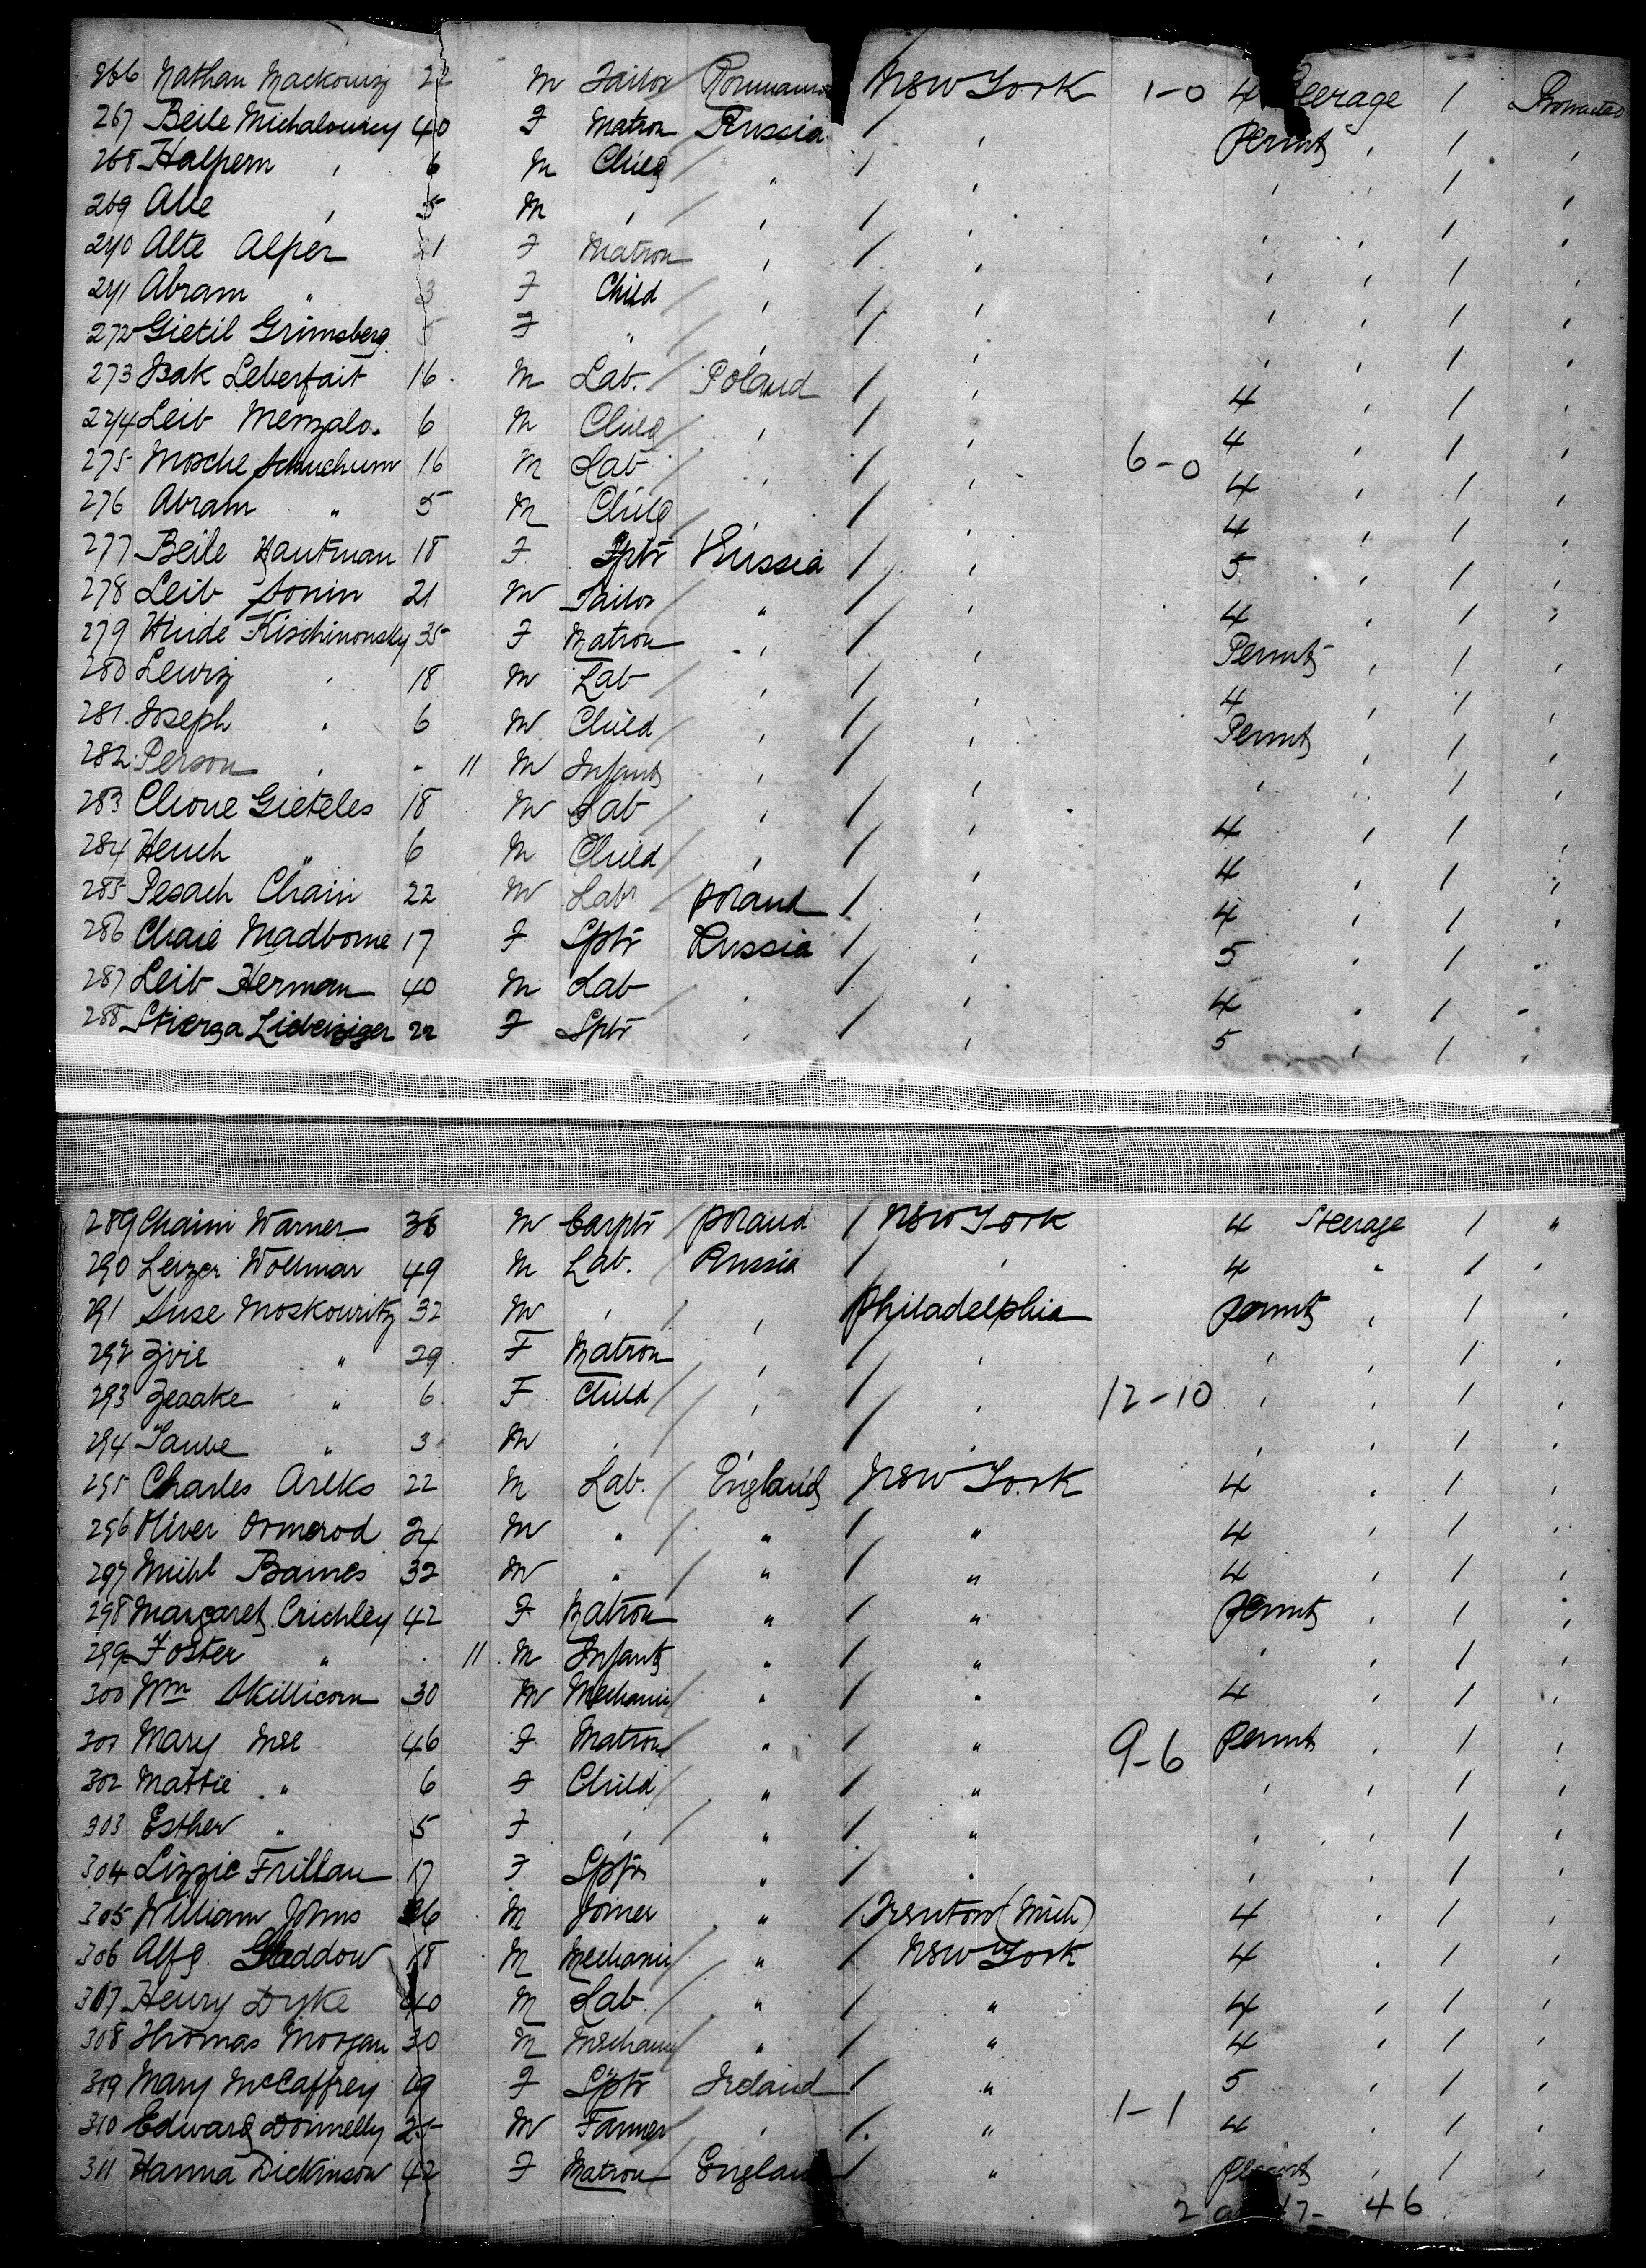 266 Nathan Mackowiz 22 M Tailor Roumania New York 1-0 4 Steerage / Protracted
267 Beile 40 F Matron Russia / , Permt , / ,
268 Halpern , 6 M Child / " / , , , / ,
269 Abe , 5 M , / , / , , , / ,
270 Alte Alper 21 F Matron , / , , , / ,
271 Abram " 3 F Child / , / , , , / ,
272 Gietil Grimsberg 5 F " / , / , , , / ,
273 Isak Leberfait 16 M Lab. / Poland / , 4 , / ,
274 Leib 6 M Child / , / , 4 , / ,
275 Mosche Schuchum 16 M Lab / , / , 6-0 4 , / ,
276 Abram " 5 M Child / , / , 4 , / ,
277 Beile Hautman 18 F Sptr Russia / , 5 , / ,
278 Leib Sonin 21 M Tailor / " / , 4 , / ,
279 Hinde Kischinousky 35 F Matron , / , Permt , / ,
280 Lewiz , 18 M Lab / , / , 4 , / ,
281 Joseph , 6 M Child / , / , Permt , / ,
282 Person , - 11 M Infant , / , , , / ,
283 Chone Gieteles 18 M Lab / , / , 4 , / ,
284 Hench " 6 M Child / , / , 4 , / ,
285 Pesach Chain 22 M Labr / Poland / , 4 , / ,
286 Chaie Madborne 17 F Sptr Russia / , 5 , / ,
287 Leib Herman 40 M Lab / , / , 4 , / ,
288 22 F Sptr , / , 5 , / ,
289 Chaim Warner 38 M Carptr / Poland / New York 4 Steerage / "
290 Leizer Wollmar 49 M Lab. / Russia / , 4 " / ,
291 Suse Moskowitz 32 M , / , Philadelphia Permt , / ,
292 Zivie " 29 F Matron , / , , , / ,
293 Zeaake " 6 F Child / , / , 12-10 , , / ,
294 Taube " 3 M , / , / , , , / ,
295 Charles Arlks 22 M Lab. / England / New York 4 , / ,
296 Oliver Ormerod 24 M " / " / " 4 , / ,
297 Michl Baines 32 M " / " / " 4 , / ,
298 Margaret Crichley 42 F Matron " / " Permt , / ,
299 Foster " 11 M Infant " / " , , / ,
300 Wm Skillicorn 30 M Mechanic / " / " 4 , / ,
301 Mary Mee 46 F Matron " / " 9-6 Permt , / ,
302 Mattie " 6 F Child / " / " , , / ,
303 Esther " 5 F , / " / " , , / ,
304 Lizzie Frillau 17 F Sptr " / " , , / ,
305 William Johns 26 M Joiner " / Trenton (Mich) 4 , / ,
306 Alfd. Gladdow 18 M Mechanic / " / New York 4 , / ,
307 Henry Dyke 40 M Lab / " / " 4 , / ,
308 Thomas Morgan 30 M Mechanic / " / " 4 , / ,
309 Mary McCaffrey 19 F Sptr Ireland / " 5 , / ,
310 Edward Donnelly 25 M Farmer / , / " 1-1 4 , / ,
311 Hanna Dickinson 42 F Matron England / " Permt , / ,
46